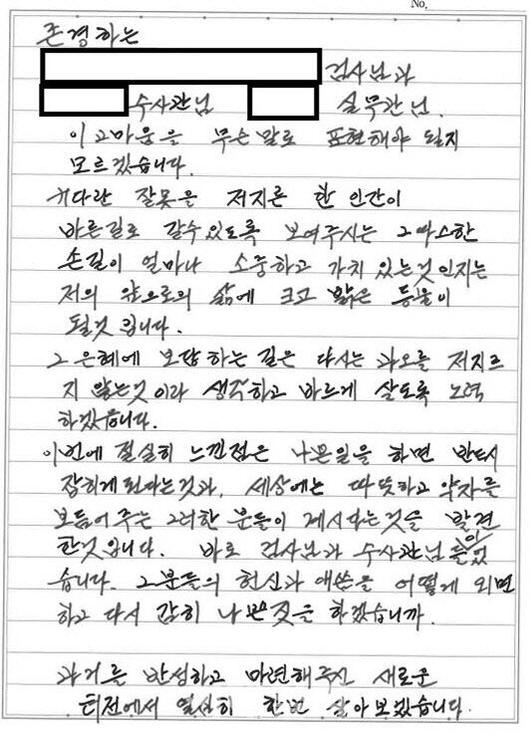 No.
존경하는
검사님과
수사관님 실무관님.
이 고마움을 무슨 말로 표현해야 될지
모르겠습니다.
커다란 잘못을 저지른 한 인간이
바른길로 갈수있도록 보여주시는 그따스한
손길이 얼마나 소중하고 가치 있는것인지는
저의 앞으로의 삶에 크고 밝은 등불이
될것 입니다.
그 은혜에 보답하는 길은 다시는 과오를 저지르
지 않는것이라 생각하고 바르게 살도록 노력
하겠습니다.
이번에 절실히 느낀점은 나쁜일을 하면 반드시
잡히게 된다는것과, 세상에는 따뜻하고 약자를
보듬어주는 그러한 분들이 계시다는것을 발견
한것입니다. 바로 검사님과 수사관님들이었
습니다. 그분들의 헌신과 애씀을 어떻게 외면
하고 다시 감히 나쁜짓을 하겠습니까.
과거를 반성하고 마련해주신 새로운
터전에서 열심히 한번 살아보겠습니다.